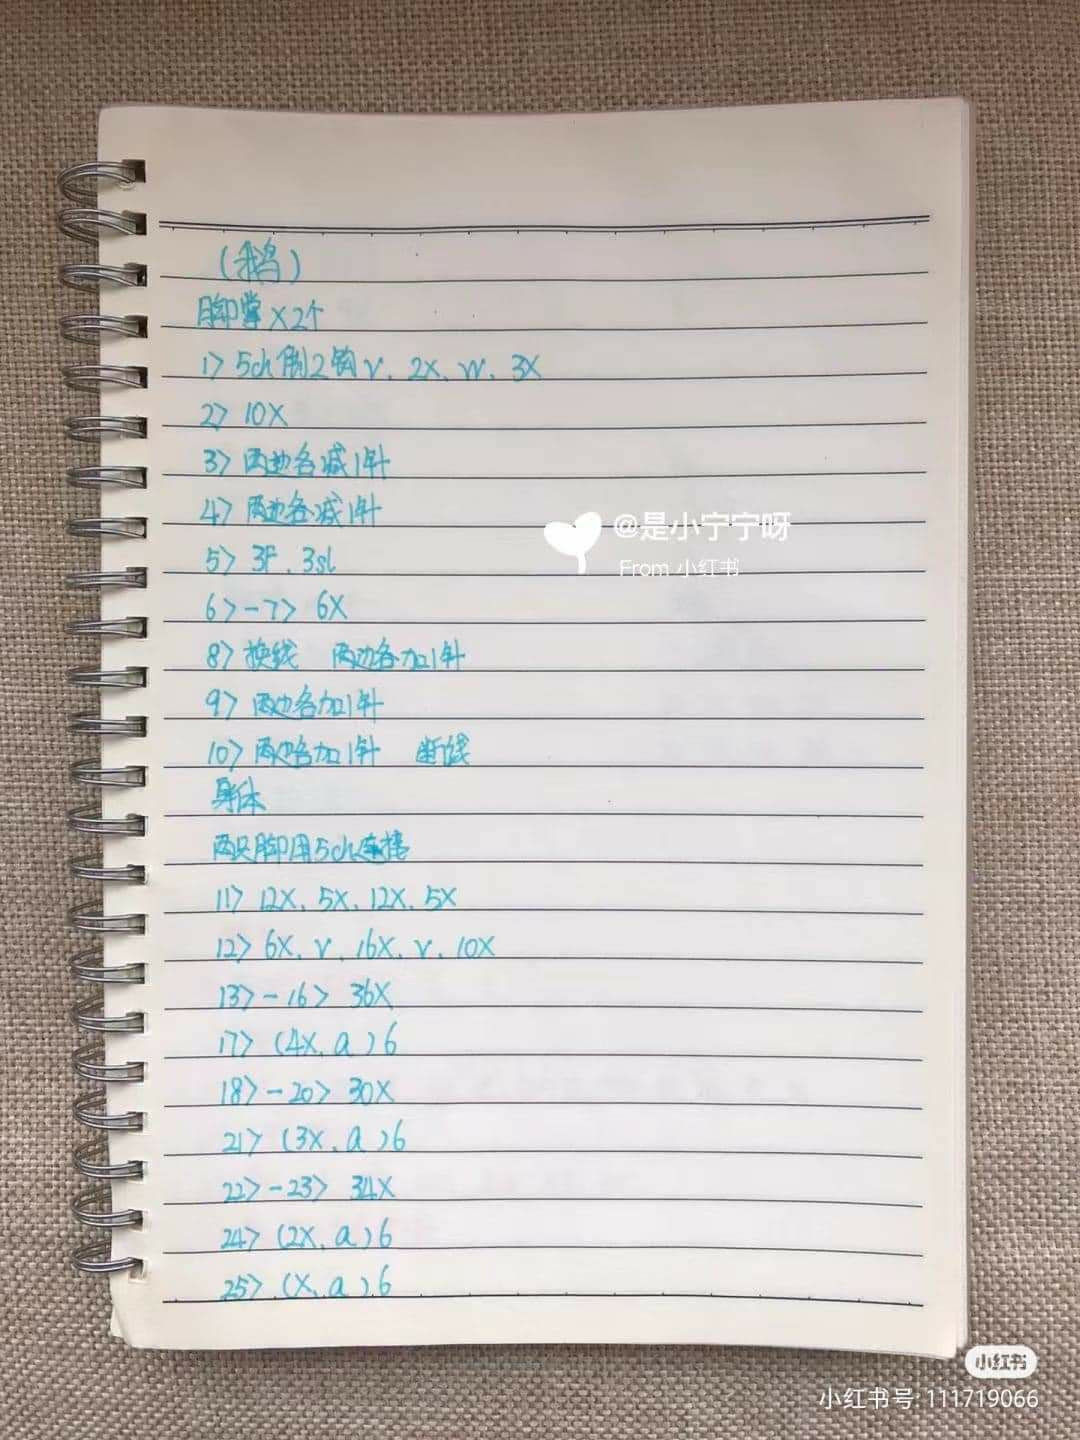 (鹅)
脚掌×2个
1> 5ch倒2钩v、2X、w、3X
2> 10X
3> 两边各减1针
4> 两边各减1针
@是小宁宁呀
From 小红书
5> 3F、3sl
6>-7> 6X
8> 换线 两边各加1针
9> 两边各加1针
10> 两边各加1针 断线
身体
两只脚用5ch连接
11> 12X、5X、12X、5X
12> 6X、v、16X、v、10X
13>-16> 36X
17> (4X、a)6
18>-20> 30X
21> (3X、a)6
22>-23> 34X
24> (2X、a)6
25> (X、a)6
小红书
小红书号: 111719066